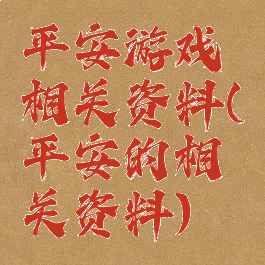 平安游戏
相关资料(
平安的相
关资料)